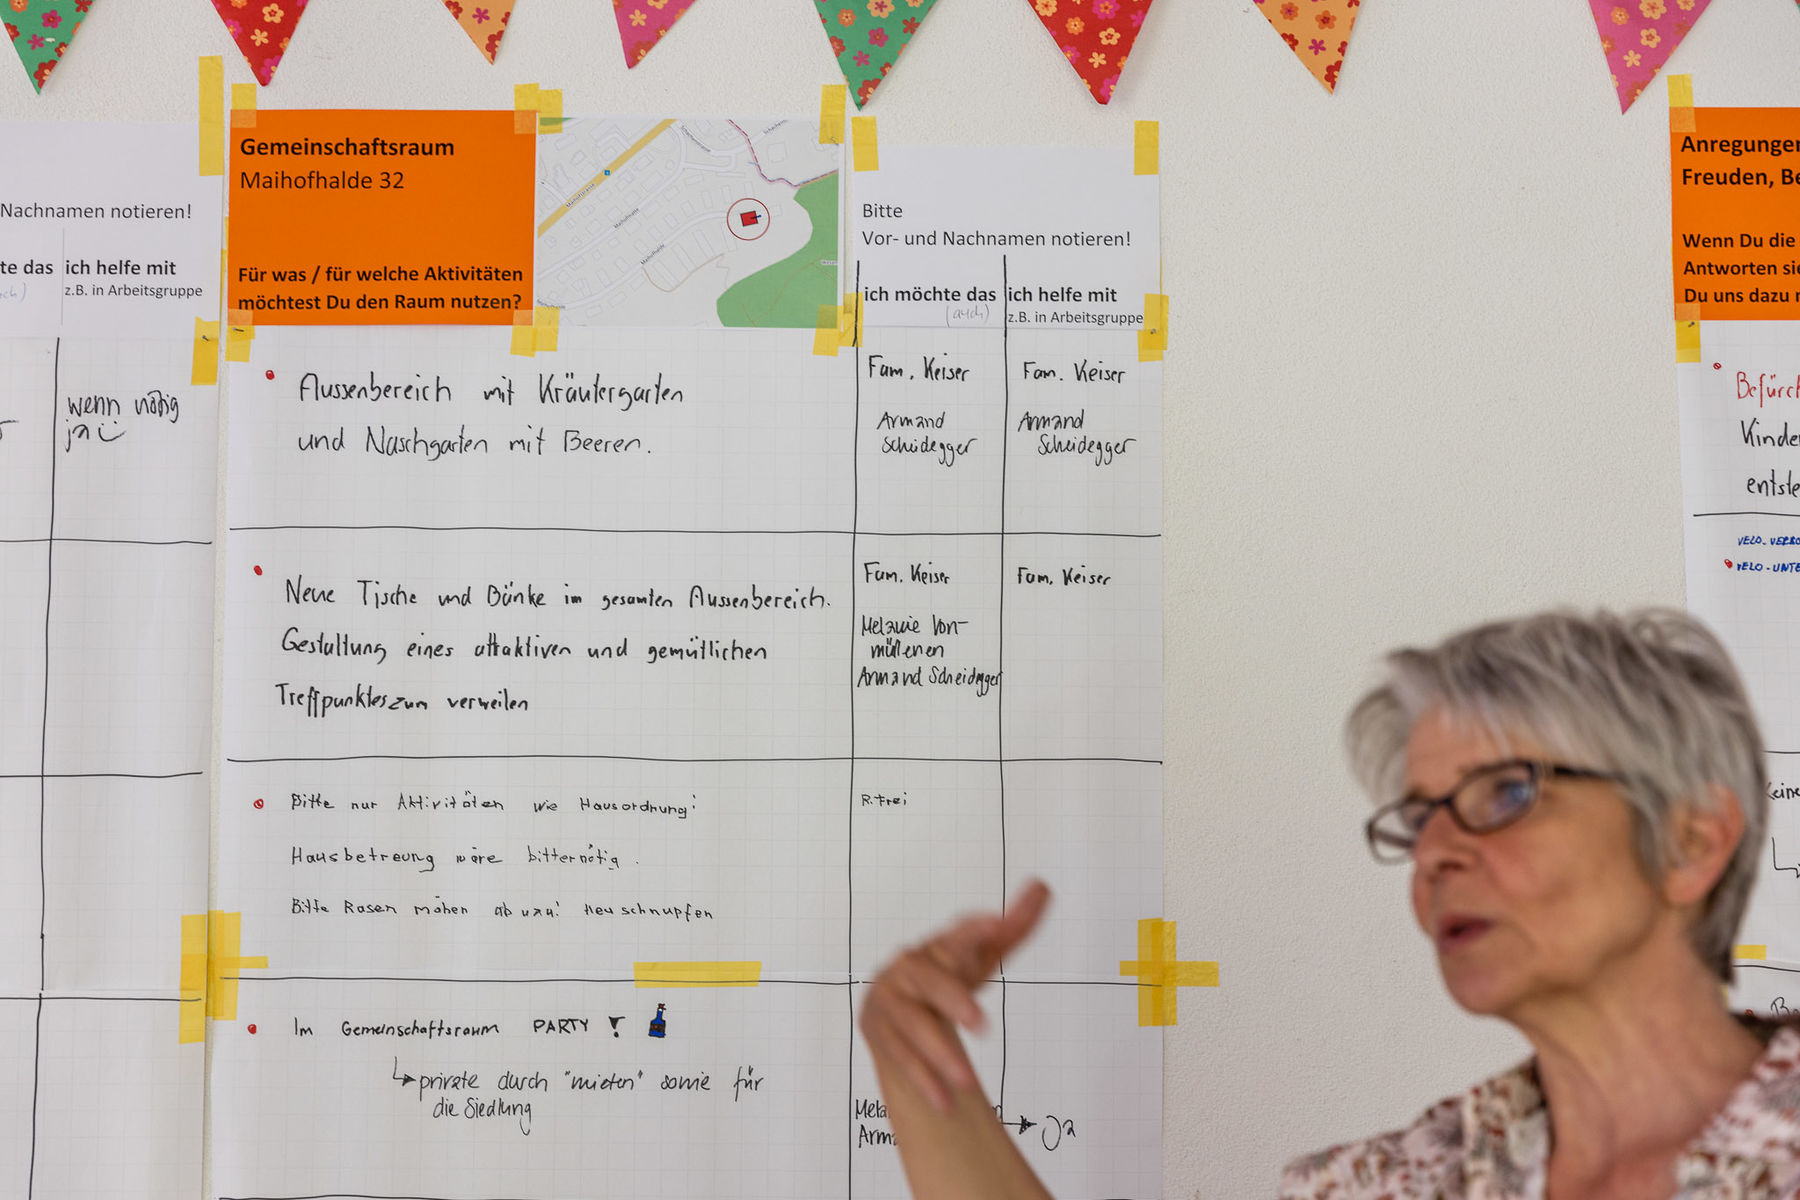 Nachnamen notieren!
te das
ich helfe mit
z.B. in Arbeitsgruppe
wenn nötig
ja
Gemeinschaftsraum
Maihofhalde 32
Für was / für welche Aktivitäten
möchtest Du den Raum nutzen?
Maihofstrasse
Maihofhalde
Maihofhalde
Bitte
Vor- und Nachnamen notieren!
ich möchte das
(auch)
ich helfe mit
z.B. in Arbeitsgruppe
Aussenbereich mit Kräutergarten
und Naschgarten mit Beeren.
Fam. Keiser
Armand
Scheidegger
Fam. Keiser
Armand
Scheidegger
Neue Tische und Bänke im gesamten Aussenbereich.
Gestaltung eines attraktiven und gemütlichen
Treffpunktes zum verweilen
Fam. Keiser
Melanie Von-
müllenen
Armand Scheidegger
Fam. Keiser
Bitte nur Aktivitäten wie Hausordnung!
Hausbetreung wäre bitternötig.
Bitte Rasen mähen ab und zu! Heuschnupfen
R. Frei
Im Gemeinschaftsraum PARTY!
private durch "mieten" sowie für
die Siedlung
Mela
Arma
Ja
Anregungen
Freuden, Be
Wenn Du die
Antworten sie
Du uns dazu
Befürch
Kinde
entste
VELO-VERBO
VELO-UNTE
Keine